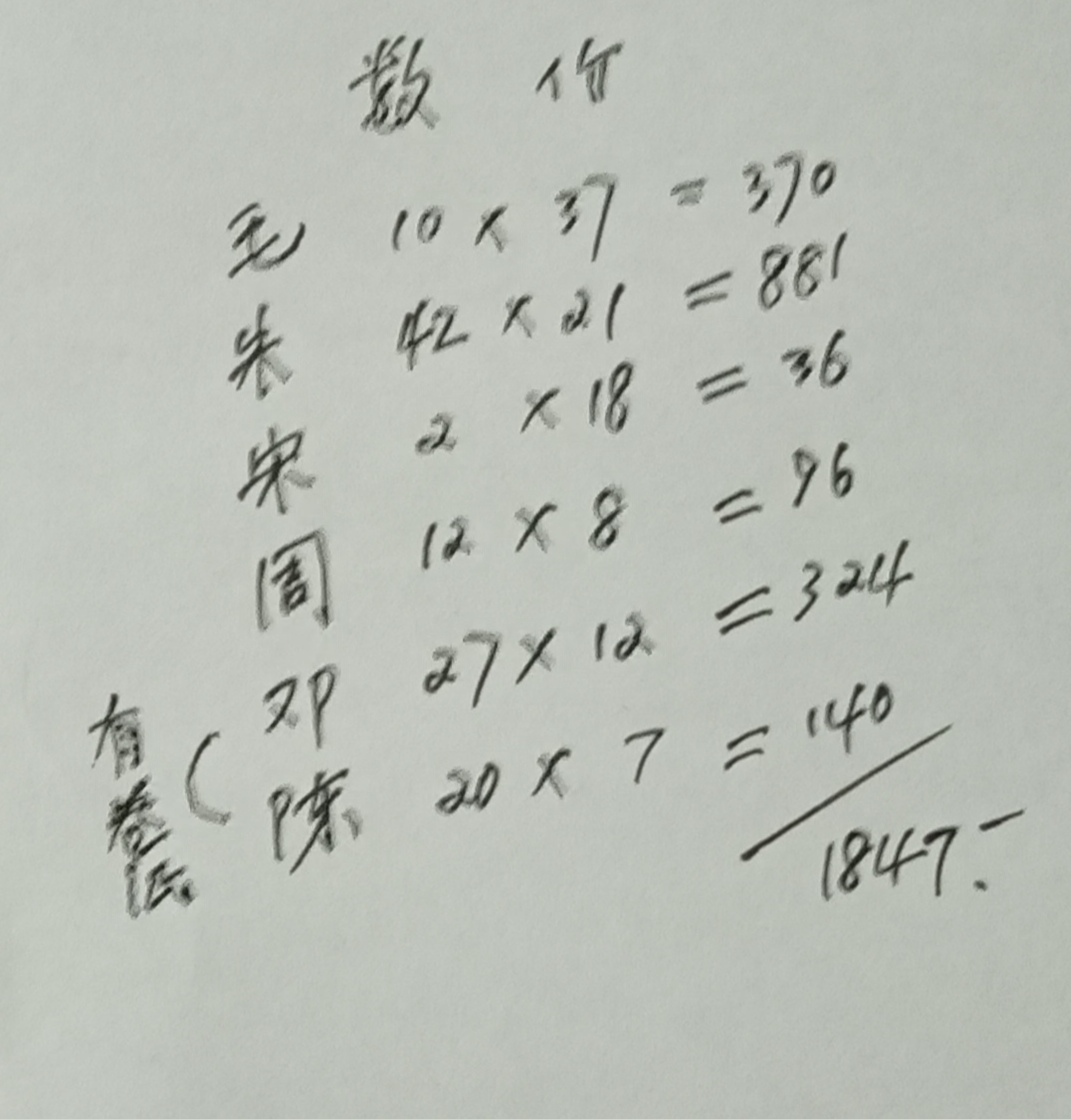 数 价
毛 10 × 37 = 370
朱 42 × 21 = 881
宋 2 × 18 = 36
周 12 × 8 = 96
邓 27 × 12 = 324
陈 20 × 7 = 140
1847.-
有卷